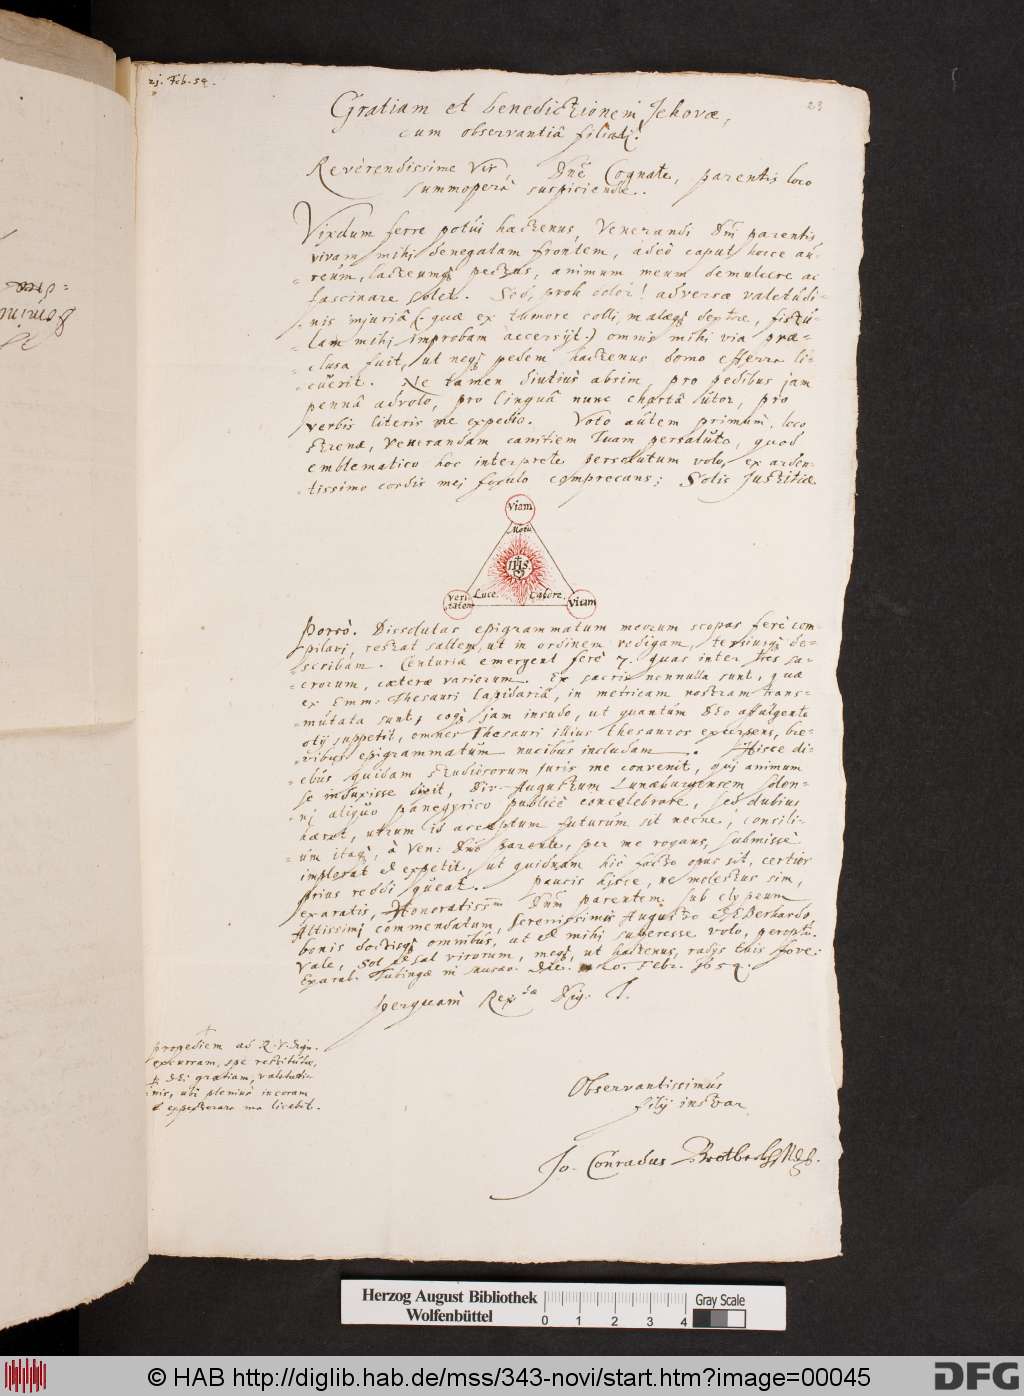 zj. Feb. 54.
23
Gratiam et benedictionem Jehovæ,
cum observantiâ filiali!
Reverendissime Vir, Dne Cognate, parentis loco
summoperè suspiciende..
Vixdum ferre potui hactenus, Venerandi Dni parentis
vivam mihi denegatam frontem, adeò caput hocce au-
reum, lacteumq pectus, animum meum demulcere ac
fascinare solet. Sed, proh dolor! adversæ valetudi-
nis injuriâ (quæ ex tumore colli, malæq dextræ, fistu-
lam mihi improbam accersijt.) omnis mihi via præ-
clusa fuit, ut neq pedem hactenus domo efferre li-
cuerit. Ne tamen diutius absim, pro pedibus jam
pennâ advolo, pro linguâ nunc chartâ utor, pro
verbis literis me expedio. Voto autem primum, loco
strenæ, Venerandam canitiem Tuam persaluto, quod
emblematico hoc interprete persolutum volo, ex arden-
tissimo cordis mei foculo comprecans; Solis Justitiæ
Viam
Motu
IHS
Luce. Calore.
Veri-
tatem
Vitam
Porrò. Dissolutas epigrammatum meorum scopas ferè com-
pilavi, restat saltem, ut in ordinem redigam, tersiusq de-
scribam. Centuriæ emergent ferè 7. quas inter tres sa-
crorum, cæteræ variorum. Ex sacris nonnulla sunt, quæ
ex Emm. Thesauri Lapidariâ, in metricam nostram trans-
mutata sunt, coq jam insudo, ut quantum Deo affulgente
otij suppetit, omnes Thesauri illius thesauros excerpens, bre-
vibus epigrammatum nucibus includam. Hisce di-
ebus quidam studiosorum juris me convenit, qui animum
se induxisse dicit, Div. Augustum Lunæburgensem solen-
ni aliquo panegyrico publicè concelebrare, sed dubius
hæret, utrum id acceptum futurum sit necne; consili-
um itaq, à Ven: Dno parente, per me rogans, submissè
implorat & expetit, ut quidnam hic facto opus sit, certior
prius reddi queat. Paucis hisce, ne molestus sim,
exaratis, Honoratissm Dnm parentem sub clypeum
Altissimi commendatum, Serenissimis Augusto & Eberhardo,
bonis doctisq omnibus, ut & mihi superesse volo, peropto.
Vale, Sol & sal virorum, meq, ut hactenus, radijs tuis fove:
Exarab. Tubingæ in musæo. Die. 20. Febr. 1654.
perquam Rev.da Dig. T.
progediem ad R. V. Dign.
excurram, spe restitutæ,
p Dei gratiam, valetudi-
nis, ubi pleniùs in coram
expectorare me licebit.
Observantissimus
filij instar
Jo. Conradus
Herzog August Bibliothek
Wolfenbüttel
0 1 2 3 4
Gray Scale
© HAB http://diglib.hab.de/mss/343-novi/start.htm?image=00045
DFG